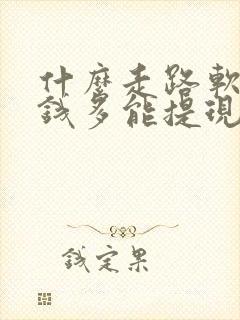 什麼走路軟
錢多能提現
錢定果